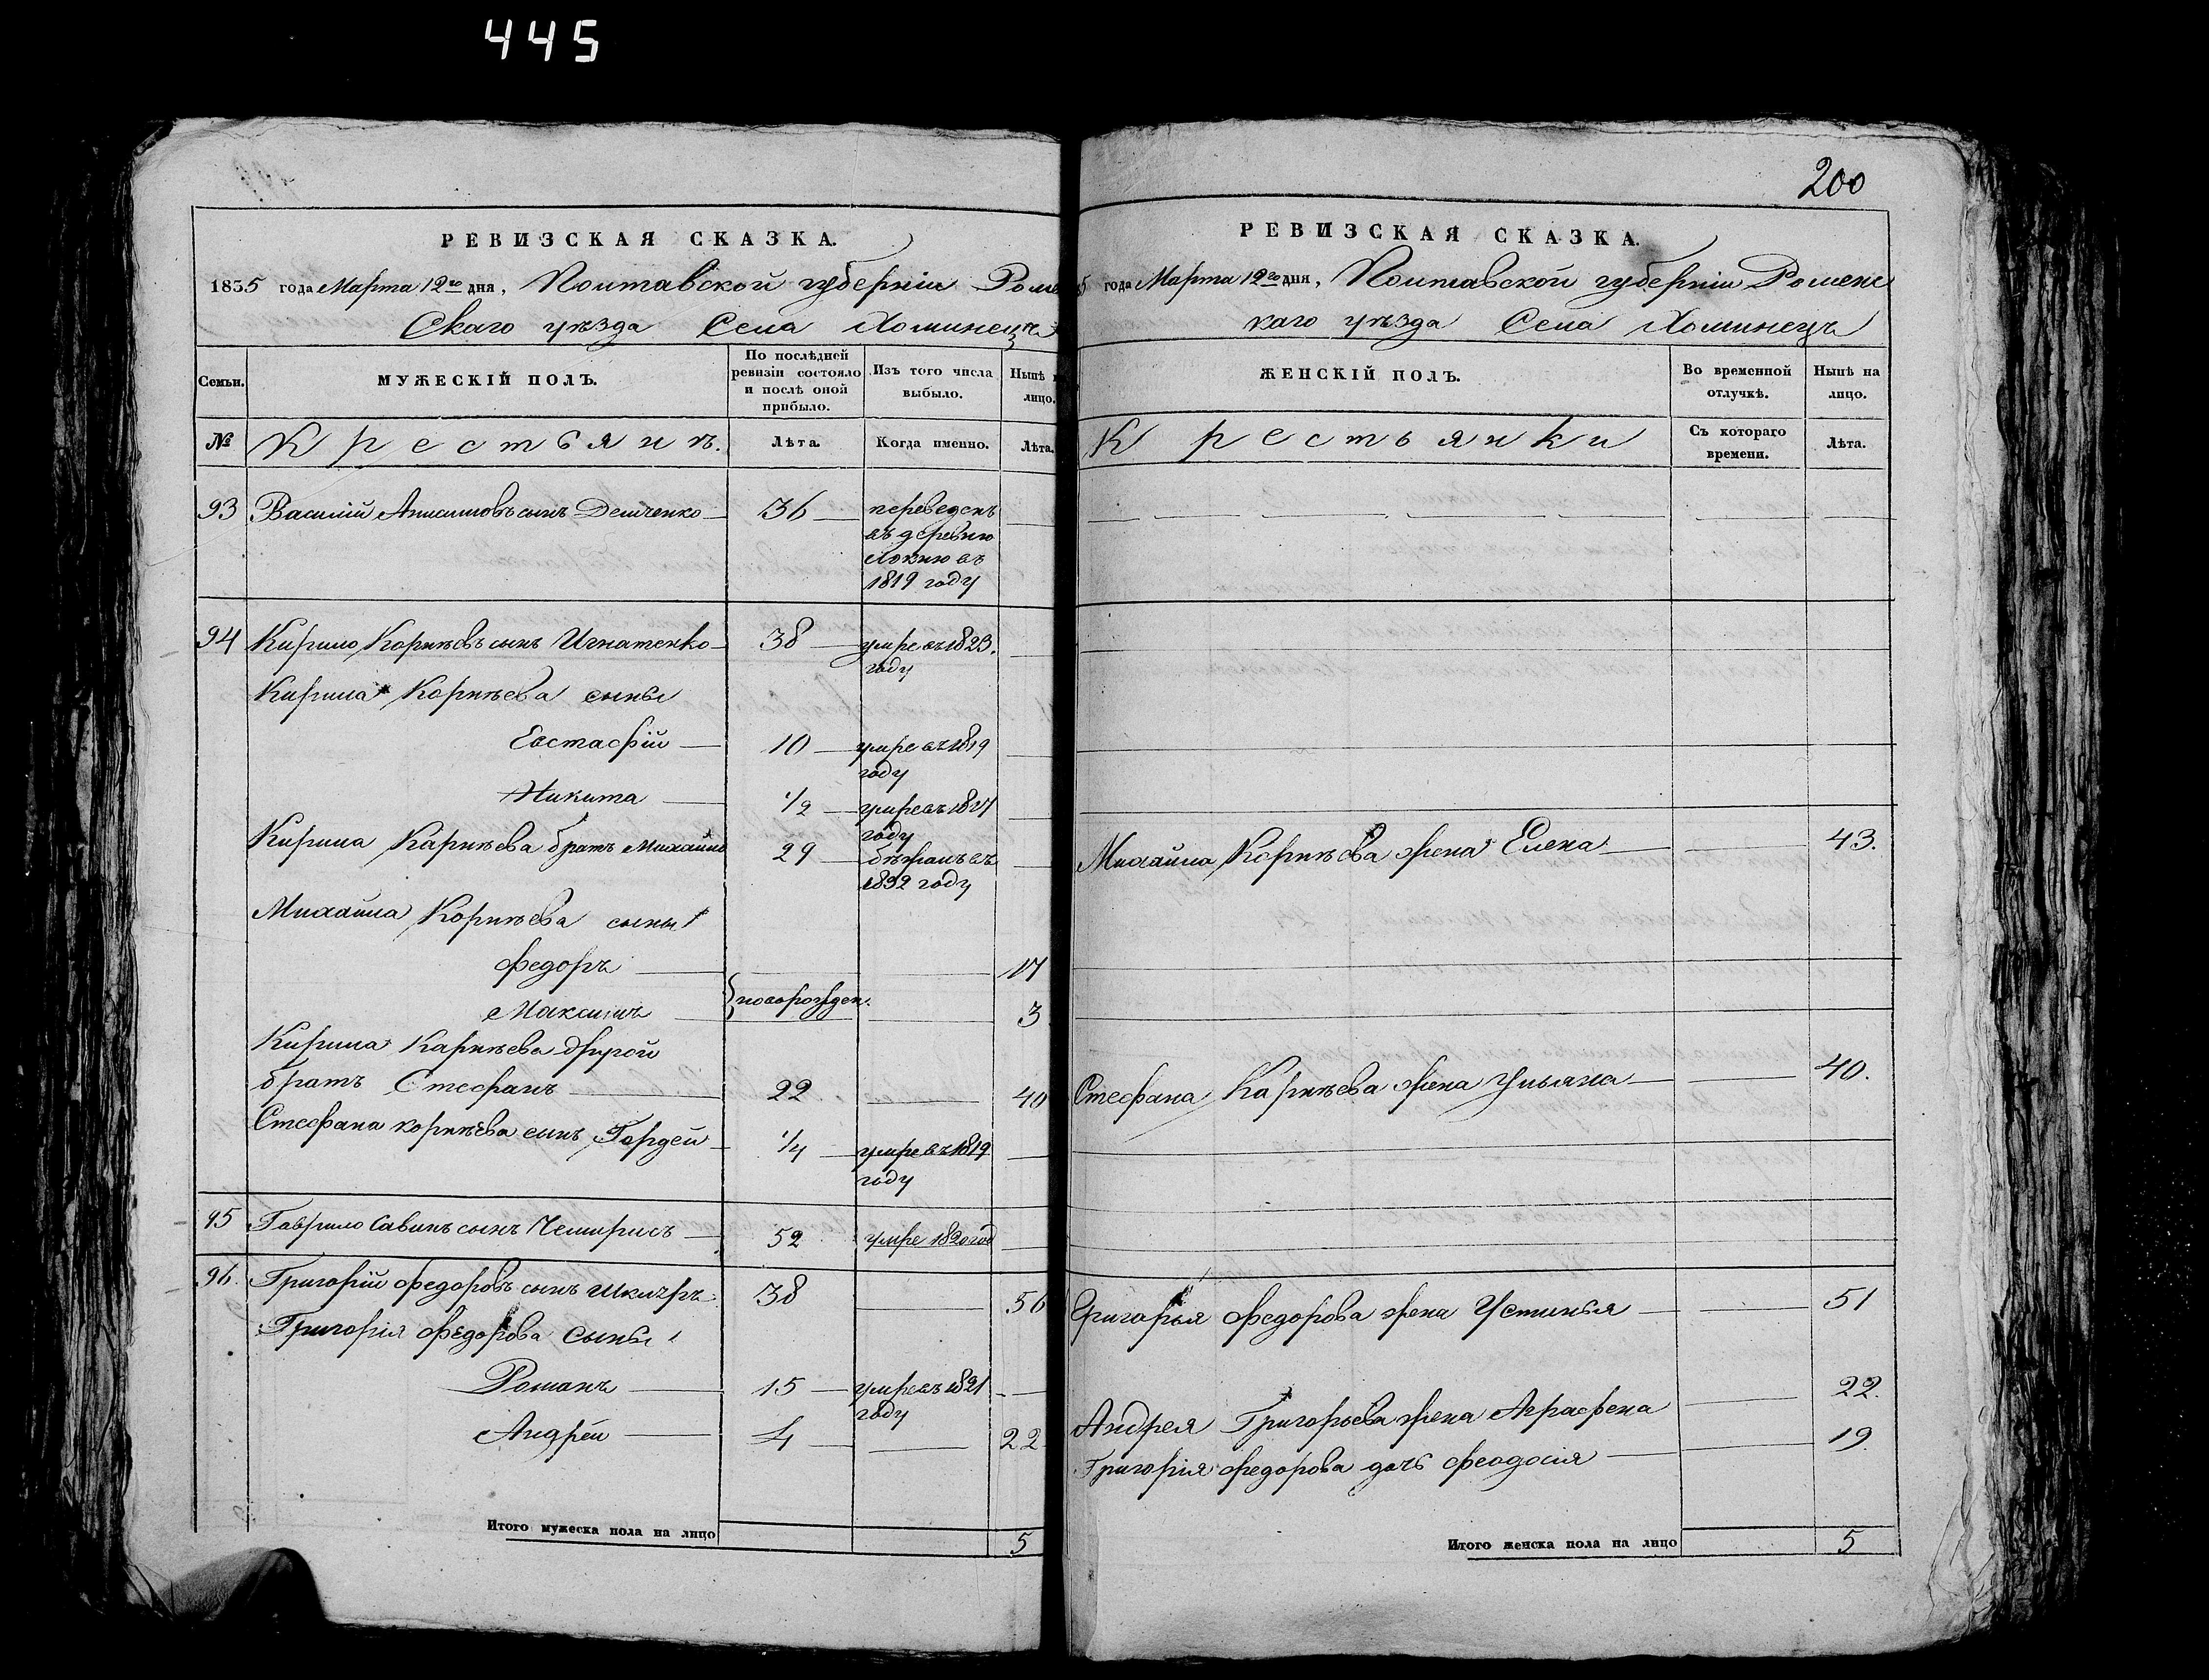 445
РЕВИЗСКАЯ СКАЗКА.
1835 года Марта 12го дня, Полтавской губерніи Роме
Скаго уѣзда Села Хоминецъ
Семьи.
МУЖЕСКІЙ ПОЛЪ.
По послѣдней ревизіи состояло и послѣ оной прибыло.
Изъ того числа выбыло.
Нынѣ
лицо.
№
Крестьянъ.
Лѣта.
Когда именно.
Лѣта.
93 Василій Анисимовъ сынъ Демченко 36 переведенъ
въ деревню
Локню въ
1819 году
94 Кирило Корнѣевъ сынъ Игнатенко 38 умре въ 1823.
году
Кирила Корнѣева сыны
Евстафій 10 умре въ 1819
году
Никита 1/2 умре въ 1817
году
Кирила Карнѣева братъ Михайло 29 бѣжалъ въ
1832 году
Михайла Корнѣева сыны
Федоръ 17
новорожден.
Максимъ 3
Кирила Карнѣева другой
братъ Стефанъ 22 40
Стефана корнѣева сынъ Гордей 1/4 умре въ 1819
году
95 Гаврило Савинъ сынъ Чемирисъ 52 умре 1820 год
96. Григорій Федоровъ сынъ 38 56
Григорія Федорова Сыны
Романъ 15 умре въ 1821
году
Андрей 4 22
Итого мужеска пола на лицо 5
200
РЕВИЗСКАЯ СКАЗКА.
5 года Марта 12го дня, Полтавской губерніи Роменс
каго уѣзда Села Хоминецъ
ЖЕНСКІЙ ПОЛЪ.
Во временной отлучкѣ.
Нынѣ на лицо.
Крестьянки
Съ котораго времени.
Лѣта.
Михайла Корнѣева жена Елена 43.
Стефана Карнѣева жена Ульяна 40.
Григорья Федорова жена Устинья 51
Андрея Григорьева жена Аграфена 22.
Григорія Федорова дочь Феодосія 19.
Итого женска пола на лицо 5